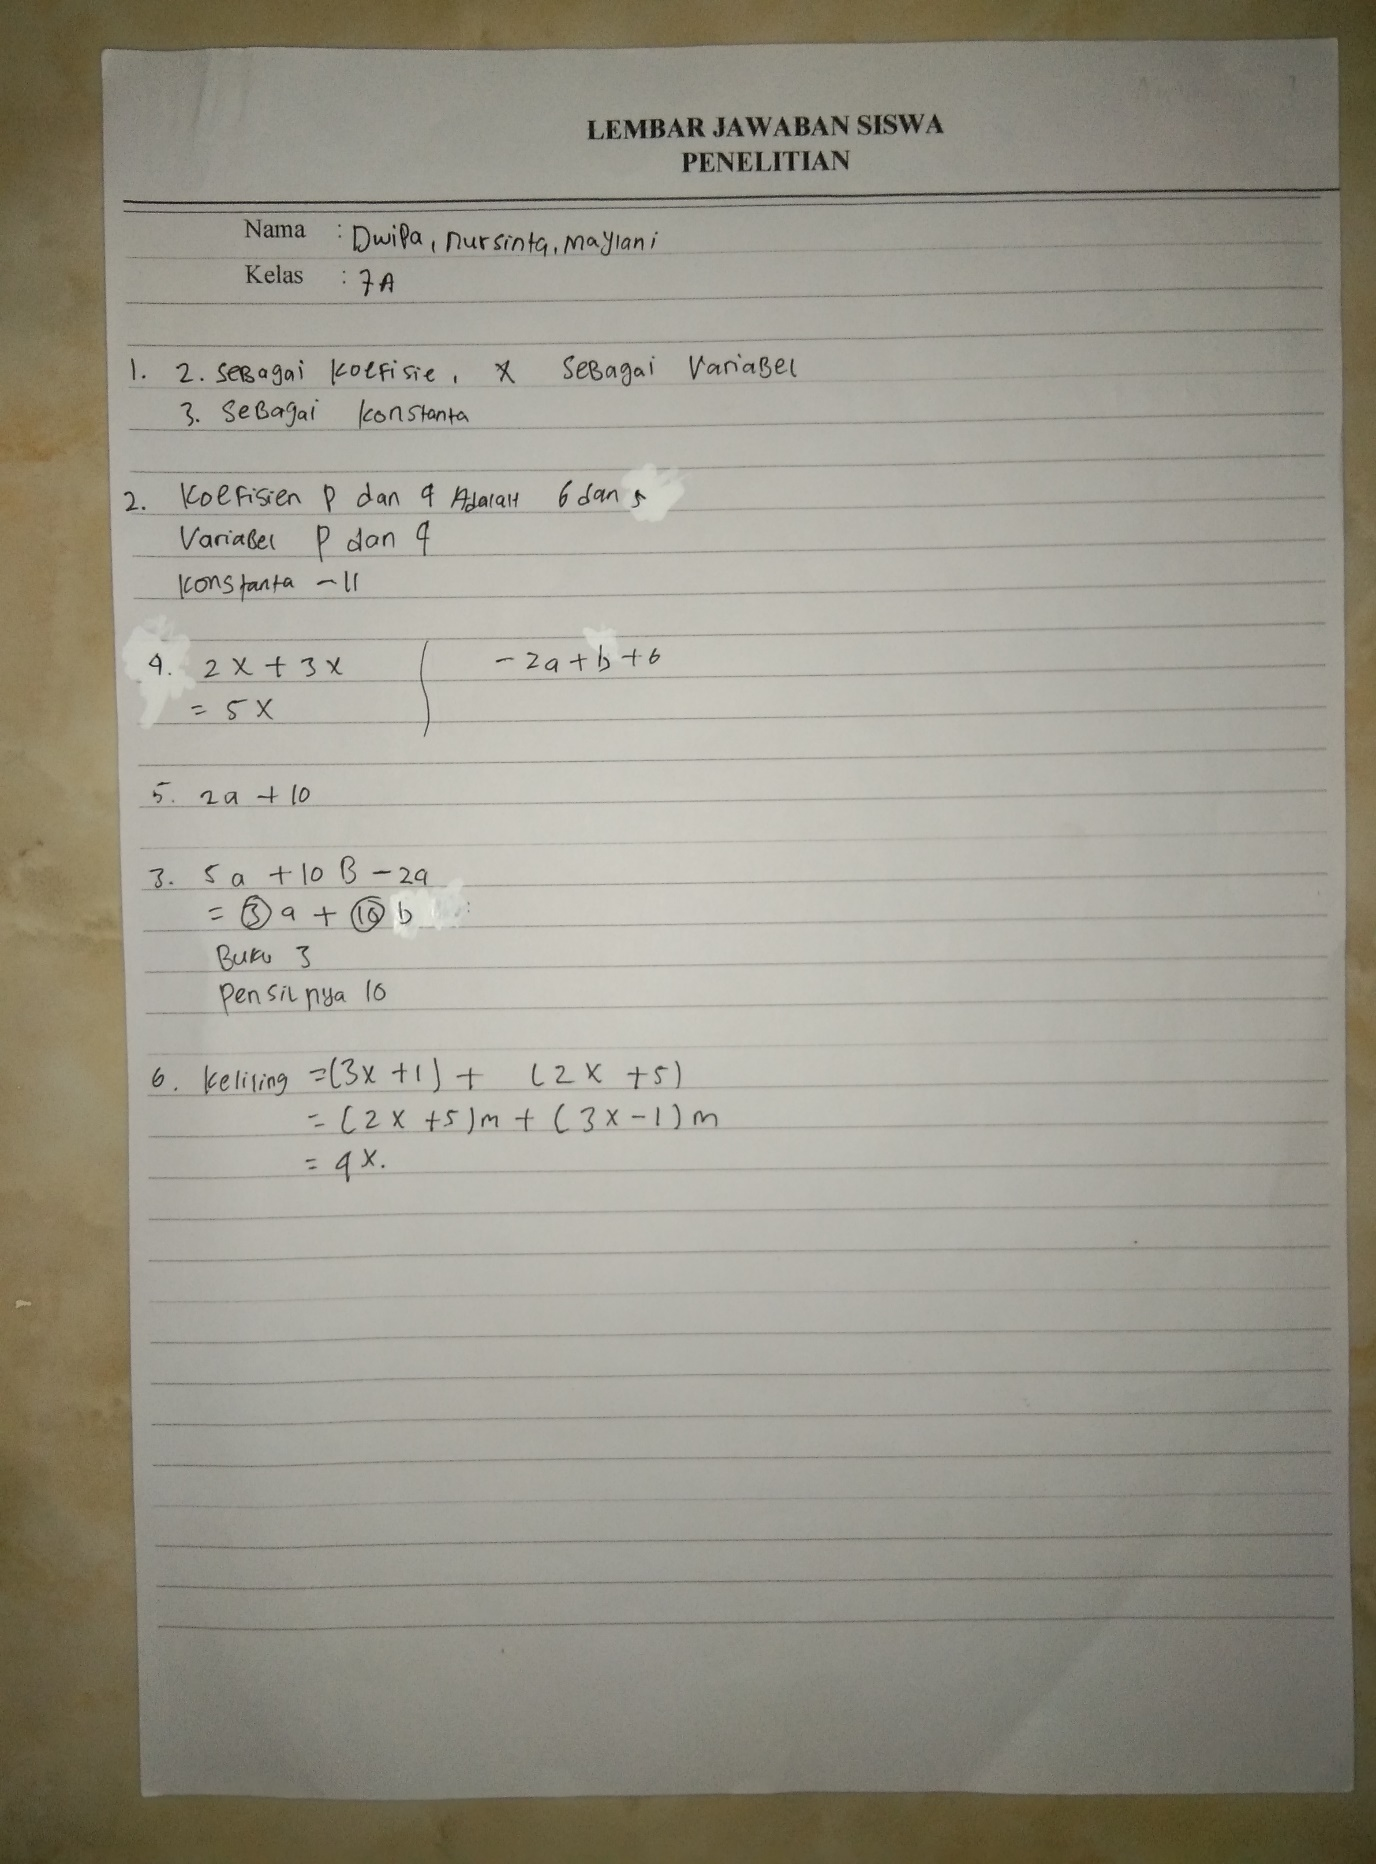 LEMBAR JAWABAN SISWA
PENELITIAN
Nama : Dwipa, nursinta, maylani
Kelas : 7A
1. 2. seBagai koefisie, x SeBagai VariaBel
3. SeBagai konstanta
2. Koefisien p dan q Adalah 6 dan 5
VariaBel p dan q
konstanta -11
4. 2x + 3x | -2a + b + 6
= 5x
5. 2a + 10
3. 5a + 10 B - 2a
= 3 a + 10 b
Buku 3
Pensilnya 10
6. keliling = (3x + 1) + (2x + 5)
= (2x + 5)m + (3x - 1)m
= 4x.